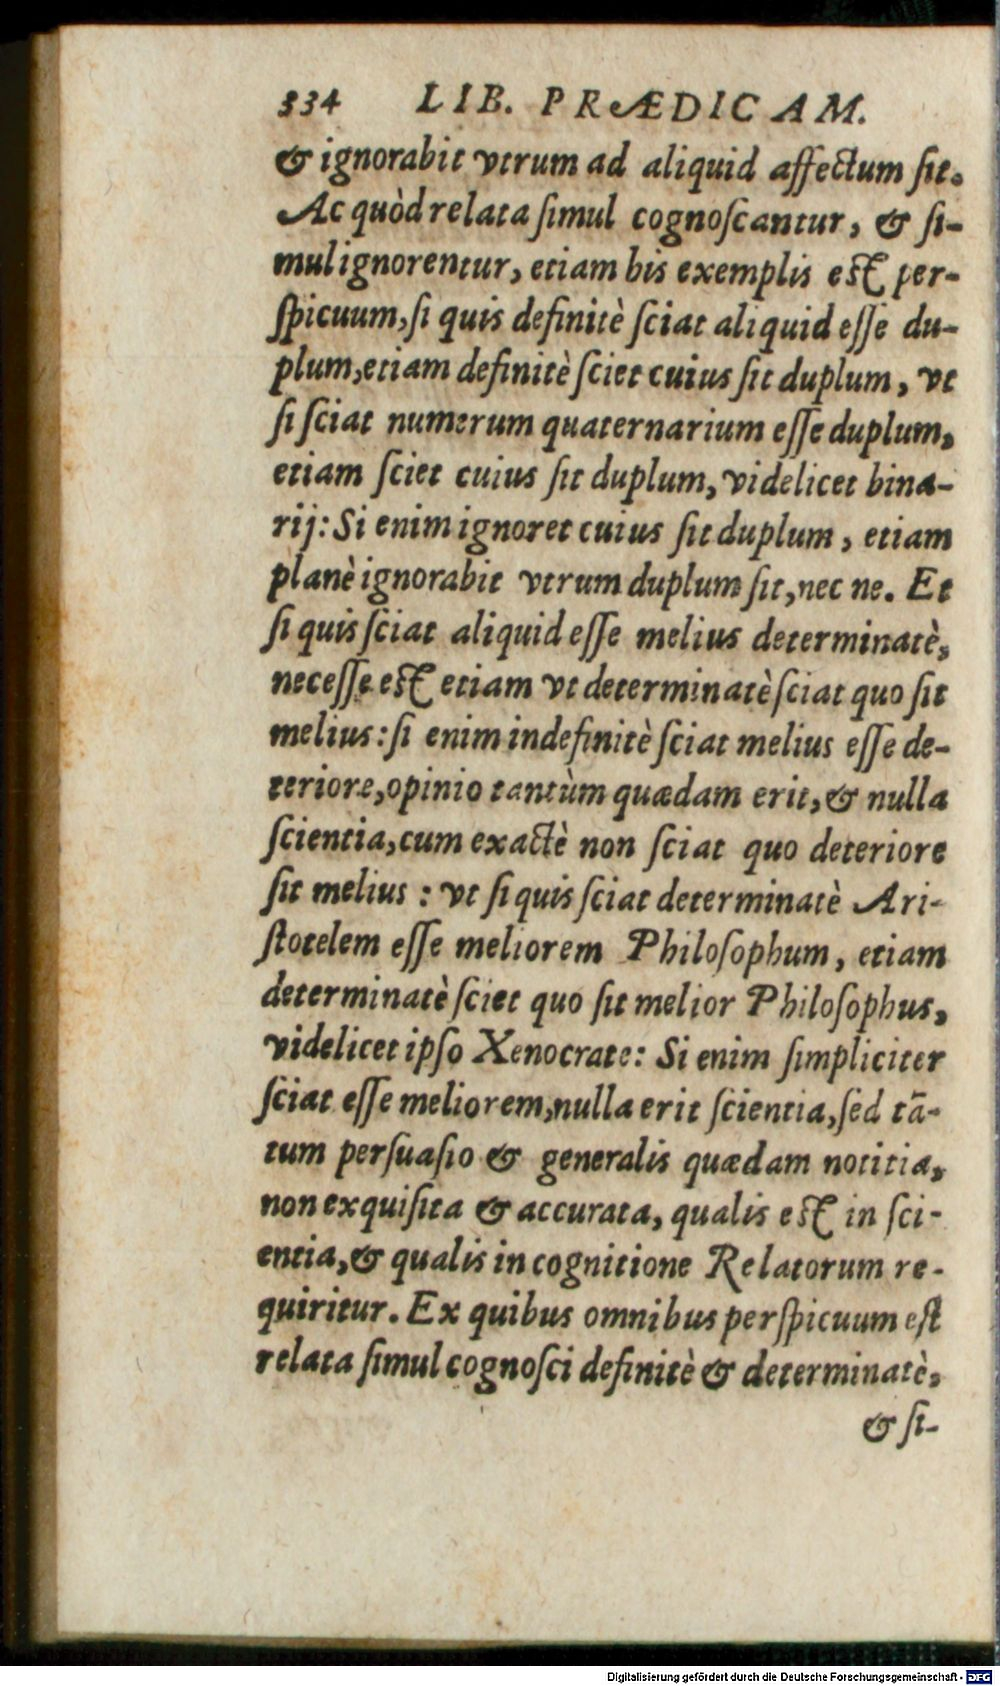 334 LIB. PRÆDICAM.
& ignorabit vtrum ad aliquid affectum ſit.
Ac quòd relata ſimul cognoſcantur, & ſi-
mul ignorentur, etiam his exemplis eſt per-
ſpicuum, ſi quis definitè ſciat aliquid eſſe du-
plum, etiam definitè ſciet cuius ſit duplum, vt
ſi ſciat numerum quaternarium eſſe duplum,
etiam ſciet cuius ſit duplum, videlicet bina-
rij: Si enim ignoret cuius ſit duplum, etiam
planè ignorabit vtrum duplum ſit, nec ne. Et
ſi quis ſciat aliquid eſſe melius determinatè,
neceſſe eſt etiam vt determinatè ſciat quo ſit
melius: ſi enim indefinitè ſciat melius eſſe de-
teriore, opinio tantùm quædam erit, & nulla
ſcientia, cum exactè non ſciat quo deteriore
ſit melius: vt ſi quis ſciat determinatè Ari-
ſtotelem eſſe meliorem Philoſophum, etiam
determinatè ſciet quo ſit melior Philoſophus,
videlicet ipſo Xenocrate: Si enim ſimpliciter
ſciat eſſe meliorem, nulla erit ſcientia, ſed tã-
tum perſuaſio & generalis quædam notitia,
non exquiſita & accurata, qualis eſt in ſci-
entia, & qualis in cognitione Relatorum re-
quiritur. Ex quibus omnibus perſpicuum eſt
relata ſimul cognoſci definitè & determinatè,
& ſi-
Digitalisierung gefördert durch die Deutsche Forschungsgemeinschaft - DFG